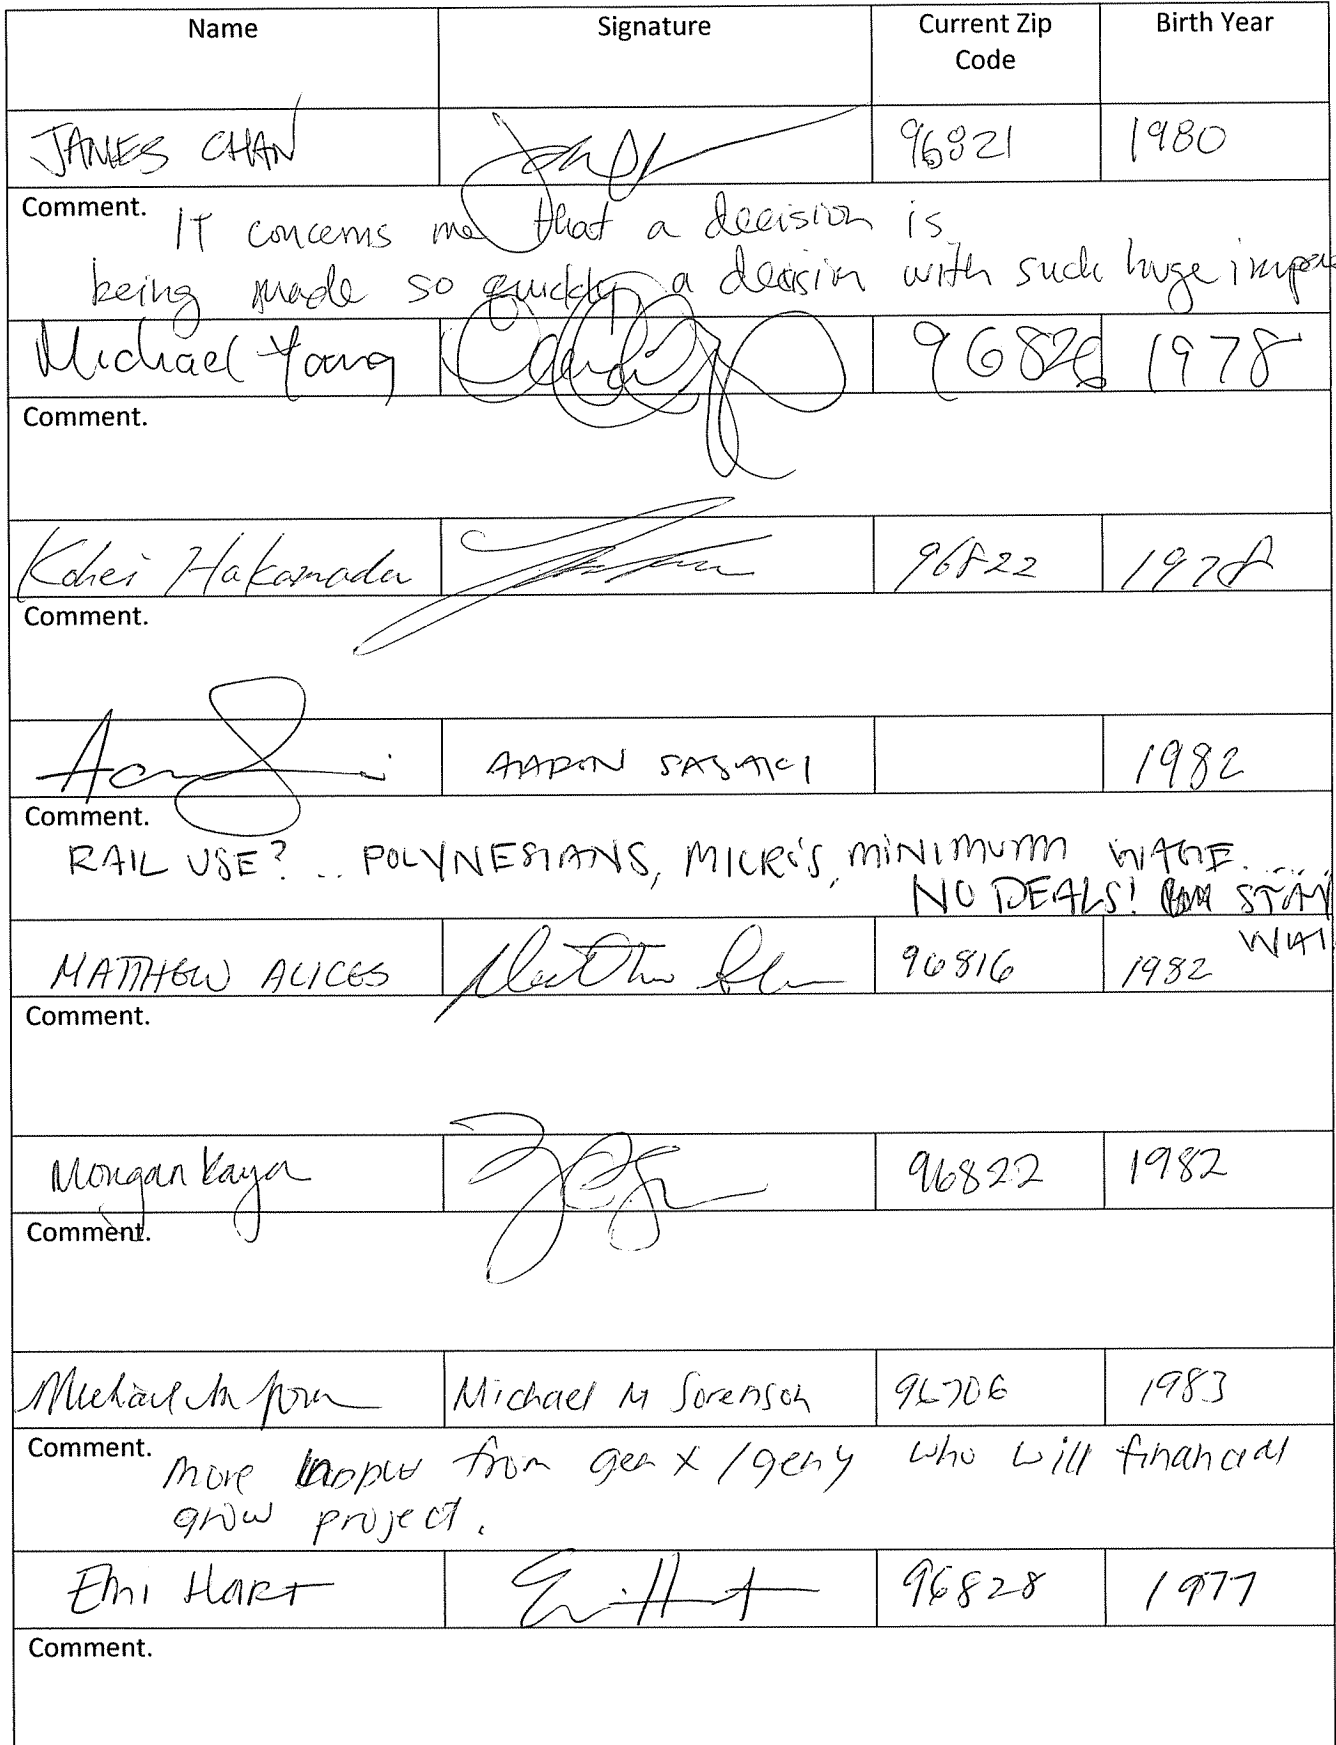 Name Signature Current Zip Code Birth Year
JAMES CHAN 96821 1980
Comment. It concerns me that a decision is
being made so quickly, a decision with such huge
Michael Young 96826 1978
Comment.
Kohei Hakamada 96822 1978
Comment.
AARON SASAKI 1982
Comment.
RAIL USE? .. POLYNESIANS, MICRO'S, MINIMUM WAGE....
NO DEALS! STAY
WAI
MATTHEW ALICES 96816 1982
Comment.
Morgan Kaya 96822 1982
Comment.
Michael M Sorenson 96706 1983
Comment. More from gen x / gen y who will financial
grow project.
Emi HART Emi Hart 96828 1977
Comment.